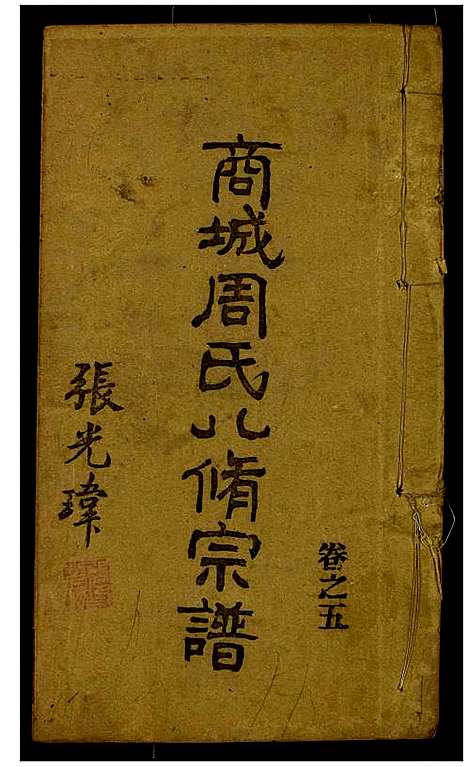 卷之五
商城周氏八脩宗譜
張光瑋